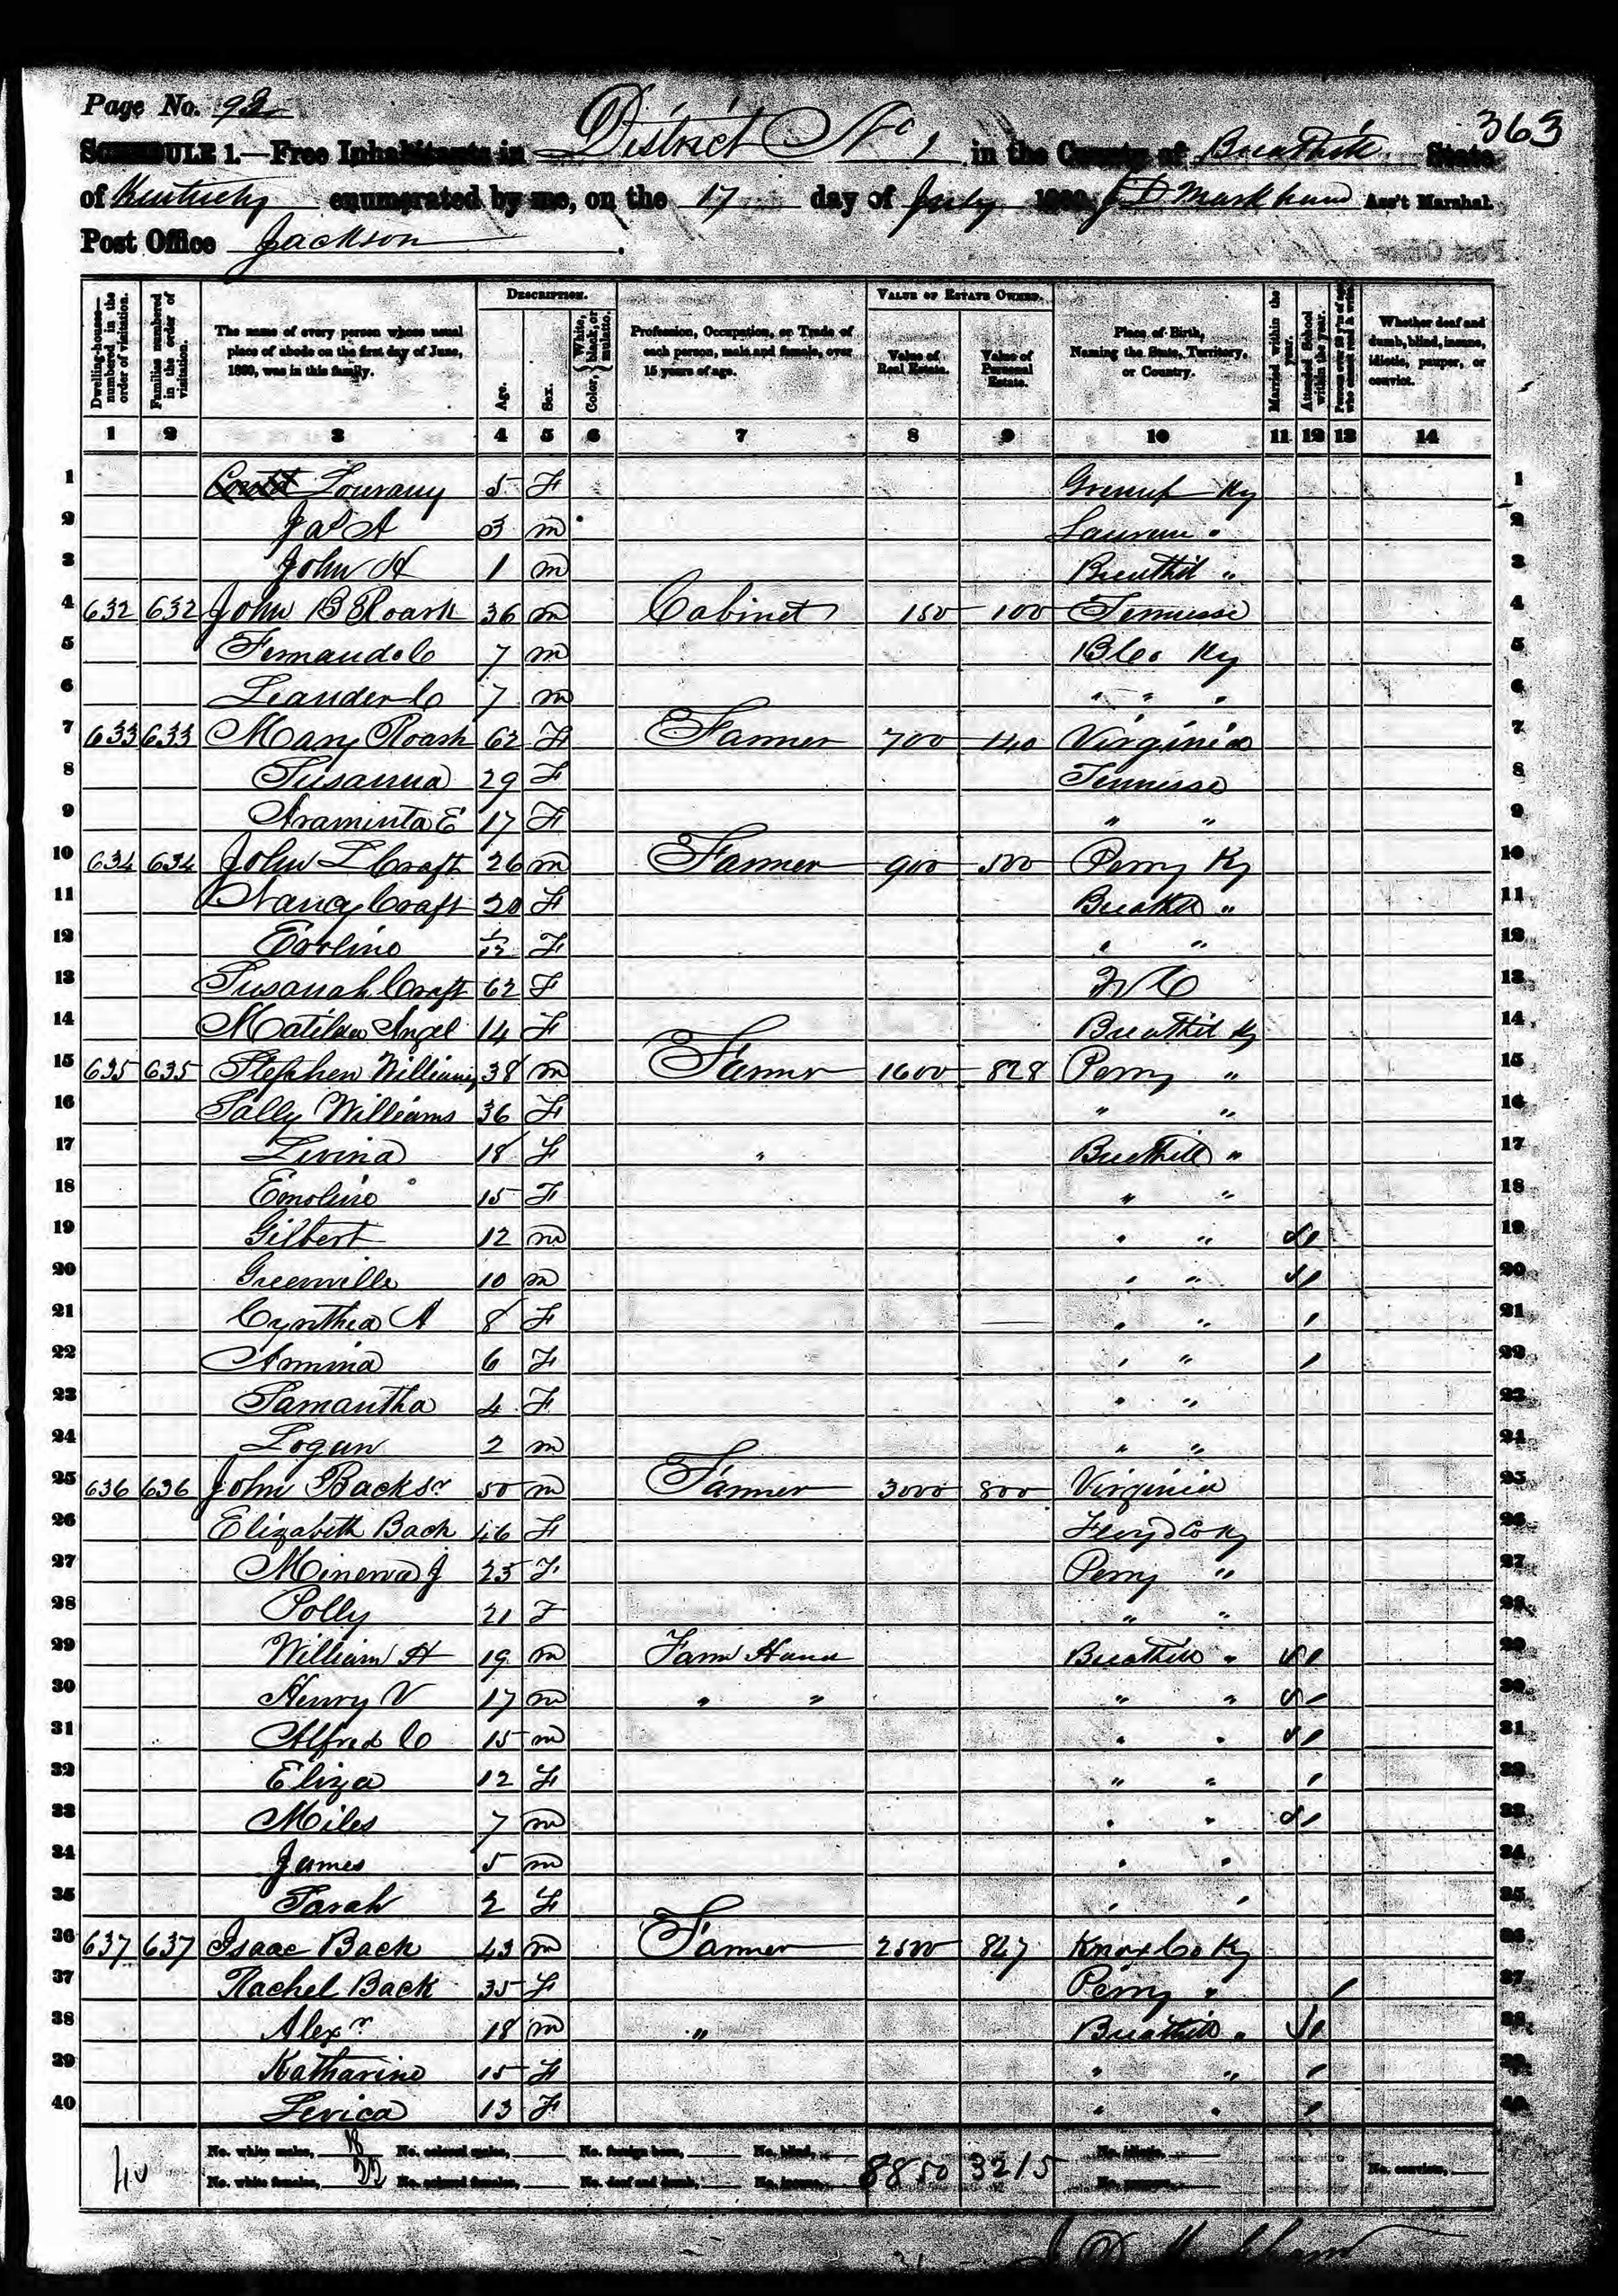 Page No. 92
363
SCHEDULE 1.—Free Inhabitants in District No 1 in the County of Breathitt State
of Kentucky enumerated by me, on the 17 day of July 1860. J D Markham Ass't Marshal.
Post Office Jackson.
Dwelling-houses—numbered in the order of visitation.
Families numbered in the order of visitation.
The name of every person whose usual place of abode on the first day of June, 1860, was in this family.
DESCRIPTION.
Age.
Sex.
Color, White, black, or mulatto.
Profession, Occupation, or Trade of each person, male and female, over 15 years of age.
VALUE OF ESTATE OWNED.
Value of Real Estate.
Value of Personal Estate.
Place of Birth, Naming the State, Territory, or Country.
Married within the year.
Attended School within the year.
Persons over 20 y'rs of age who cannot read & write.
Whether deaf and dumb, blind, insane, idiotic, pauper, or convict.
1 2 3 4 5 6 7 8 9 10 11 12 13 14
1 Lourany 5 F Greenup Ky 1
2 Jas A 3 m " 2
3 John H 1 m Breathit " 3
4 632 632 John B Roark 36 m Cabinet 150 100 Tennesse 4
5 Fernando C 7 m B Co Ky 5
6 Leander C 7 m " " " 6
7 633 633 Mary Roark 62 F Farmer 700 140 Virginia 7
8 Susanna 29 F Tennesse 8
9 Araminta E 17 F " " 9
10 634 634 John L Craft 26 m Farmer 900 500 Perry Ky 10
11 Nancy Craft 20 F Breathit " 11
12 Evoline 1/12 F " " 12
13 Susanah Craft 62 F N C 13
14 Matilda Angel 14 F Breathit Ky 14
15 635 635 Stephen Williams 38 m Farmer 1600 828 Perry " 15
16 Sally Williams 36 F " " 16
17 Levina 18 F " Breathitt " 17
18 Emoline 15 F " " 18
19 Gilbert 12 m " " 19
20 Greenville 10 m " " 20
21 Cynthia A 8 F " " 21
22 Armina 6 F " " 22
23 Samantha 4 F " " 23
24 Logan 2 m " " 24
25 636 636 John Back sr 50 m Farmer 3000 800 Virginia 25
26 Elizabeth Back 46 F Floyd Co Ky 26
27 Minerva J 23 F Perry " 27
28 Polly 21 F " " 28
29 William H 19 m Farm Hand Breathitt " 29
30 Henry V 17 m " " " " 30
31 Alfred C 15 m " " 31
32 Eliza 12 F " " 32
33 Miles 7 m " " 33
34 James 5 m " " 34
35 Sarah 2 F " " 35
36 637 637 Isaac Back 43 m Farmer 2500 847 Knox Co Ky 36
37 Rachel Back 35 F Perry " / 37
38 Alexr 18 m " Breathitt " 38
39 Katharine 15 F " " 39
40 Levica 13 F " " 40
40 No. white males, 18 No. colored males, No. foreign born, No. blind, 8850 3215 No. idiotic,
No. white females, 22 No. colored females, No. deaf and dumb, No. insane, No. paupers, No. convicts,
J D Markham